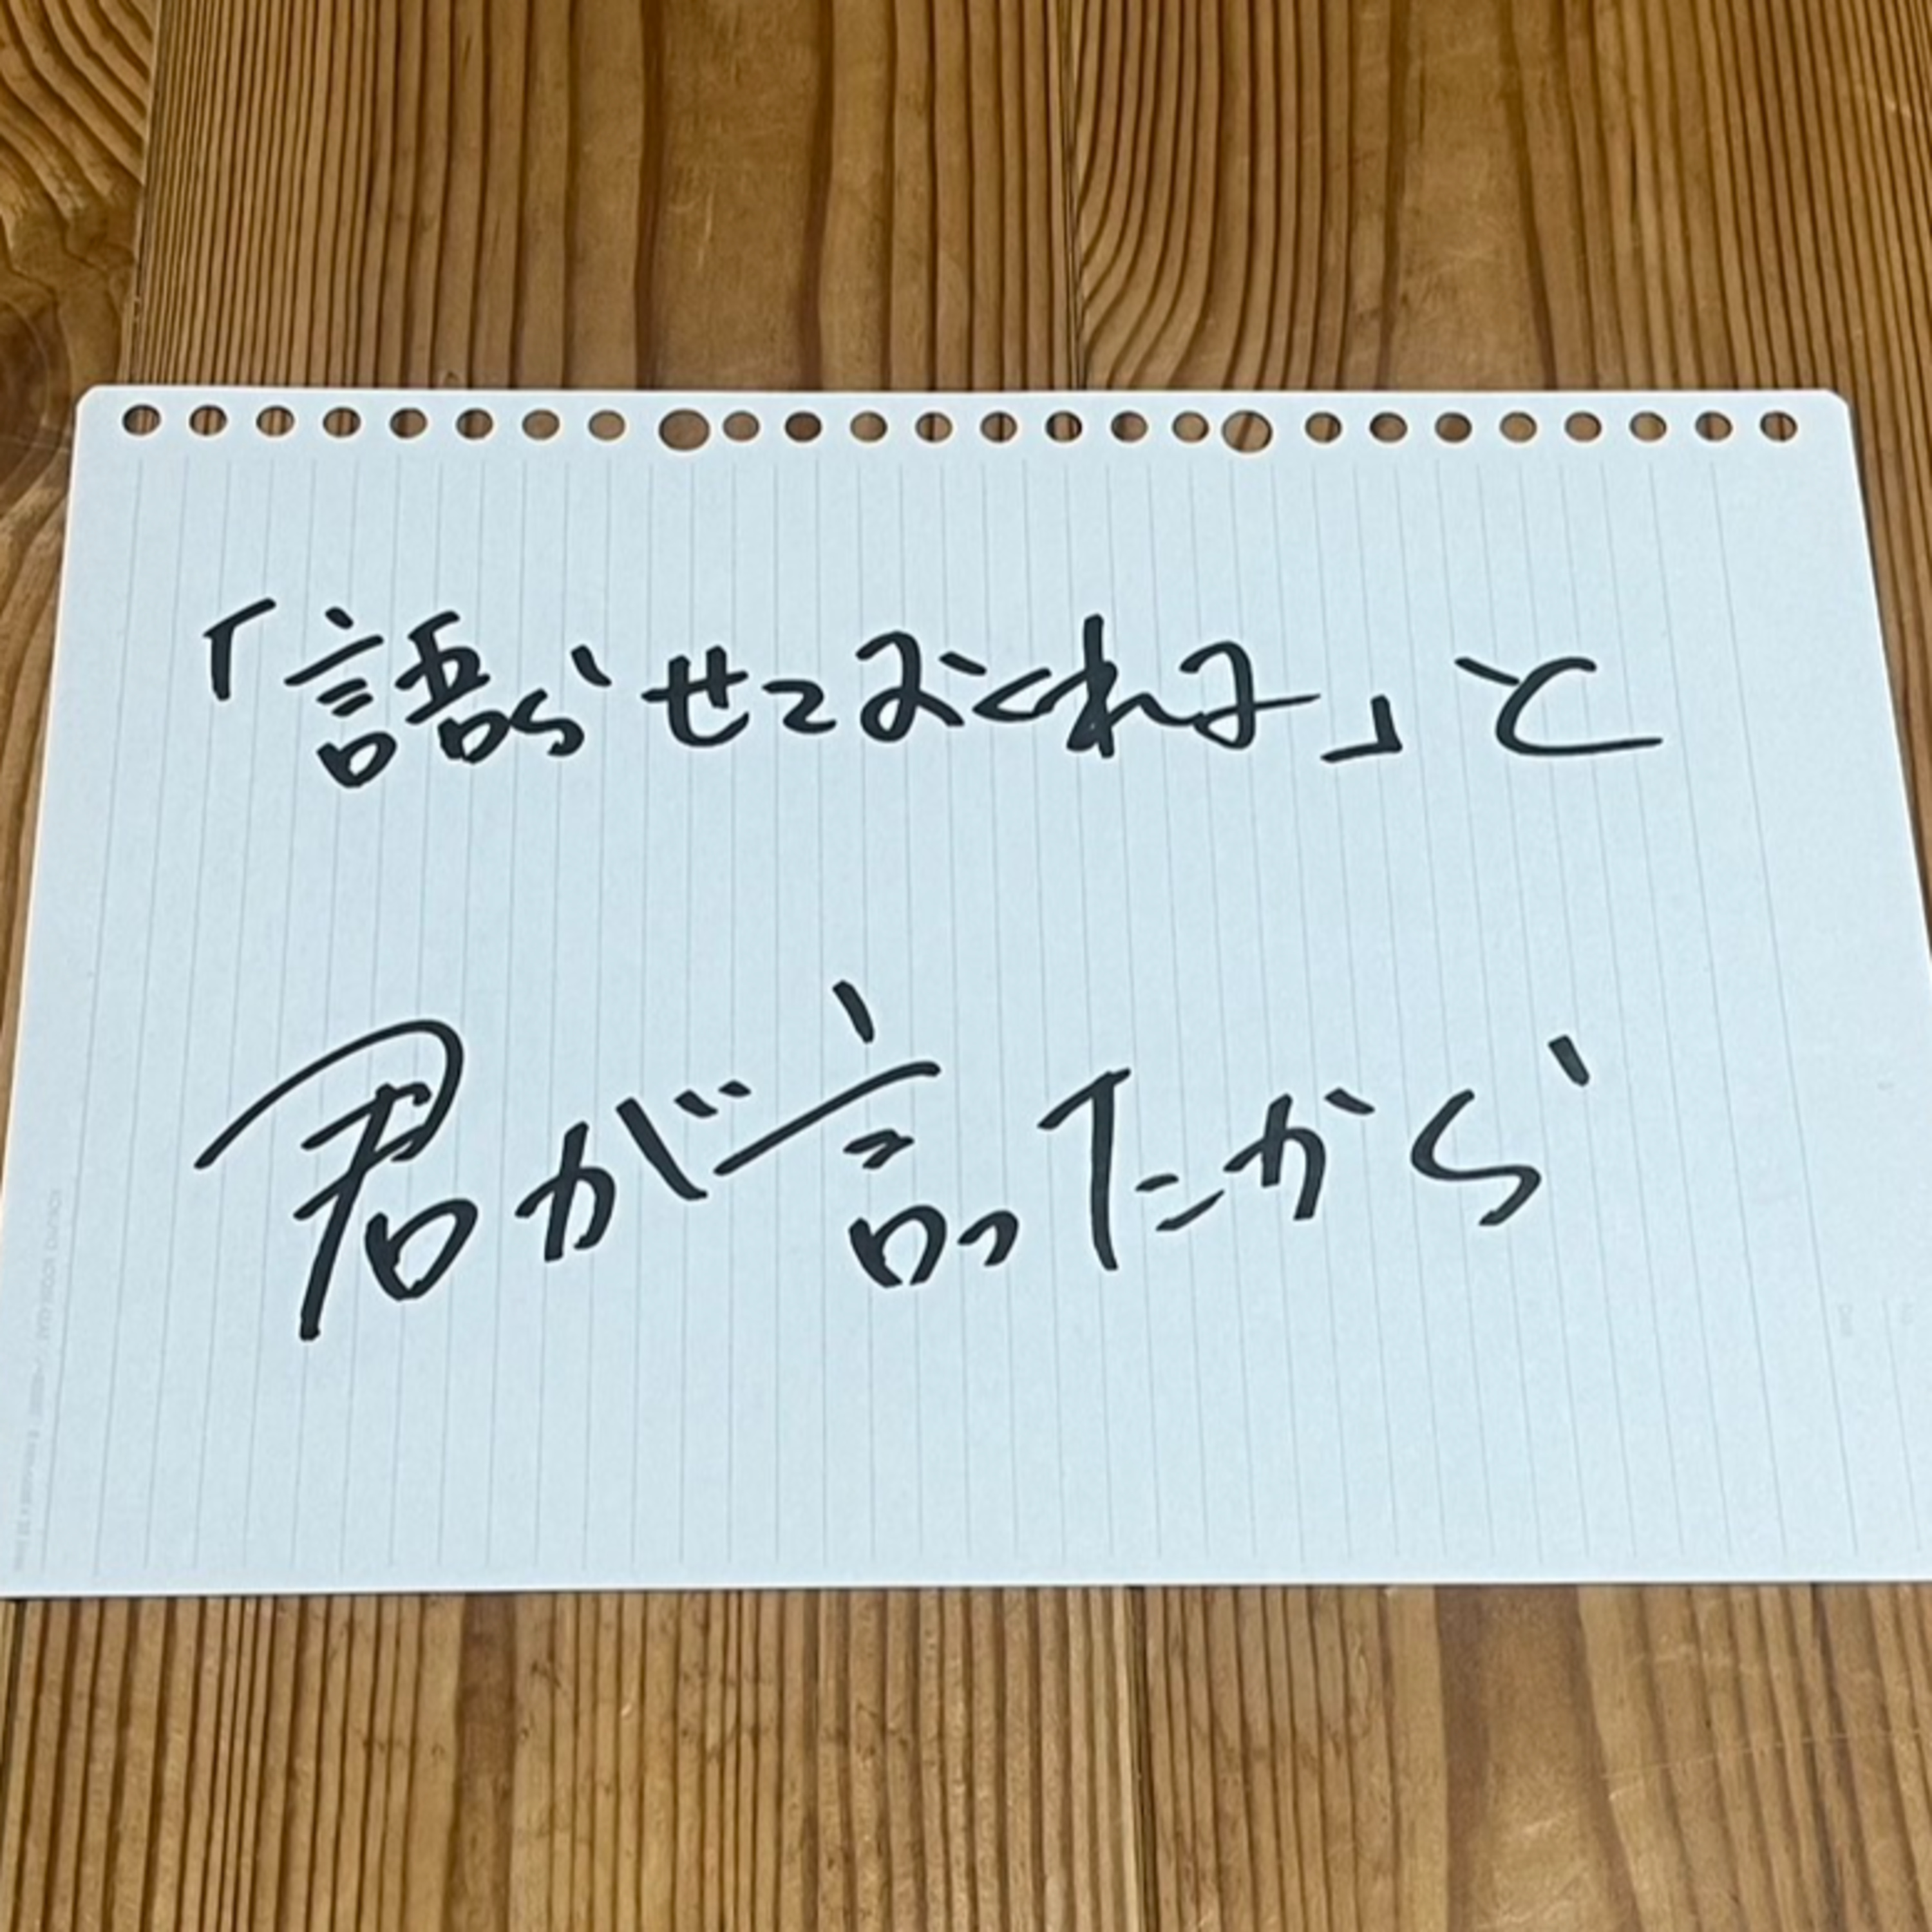 「語らせておくれよ」と
君が言ったから